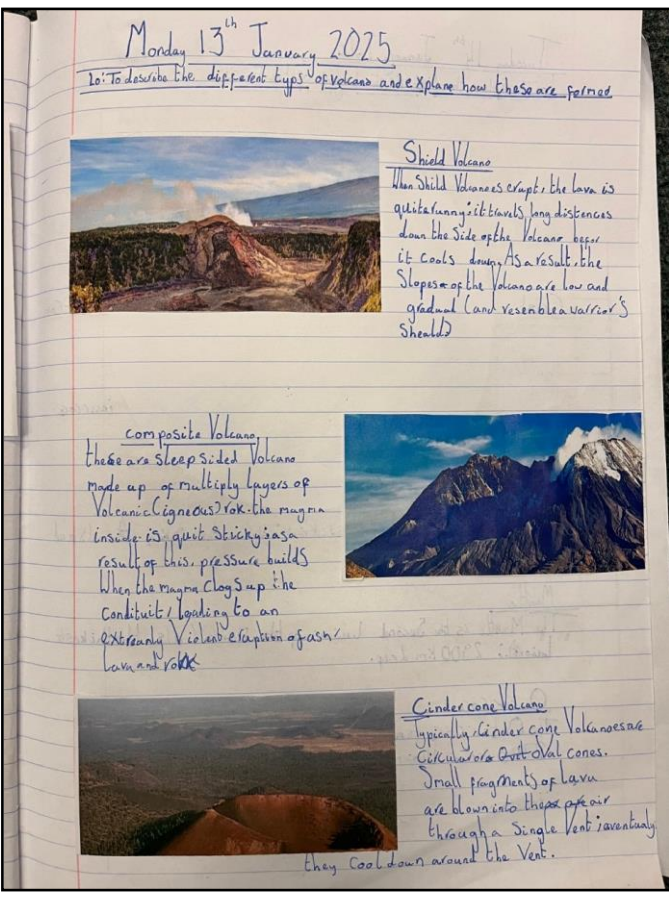 Monday 13th January 2025
Lo: To describe the different typs of volcano and explane how these are formed
Shield Volcano
When Shild Volcanoes erupt, the lava is
quite runny; it travels long distences
down the Side of the Volcano befor
it cools down. As a result, the
Slopes of the Volcano are low and
gradual (and resemble a warrior's
Sheald)
composite Volcano
these are Sleep Sided Volcano
made up of multiply layers of
Volcanic (igneous) rok. the magma
inside is quit Sticky; as a
result of this, pressure builds
When the magma Clogs up the
Condituit, leading to an
extreanly Violent eruption of ash,
Lava and rok
Cinder cone Volcano
Typically, Cinder cone Volcanoes are
Circular or Oval cones.
Small fragments of Lava
are blown into the air
through a Single Vent; aventualy
they Cool down around the Vent.